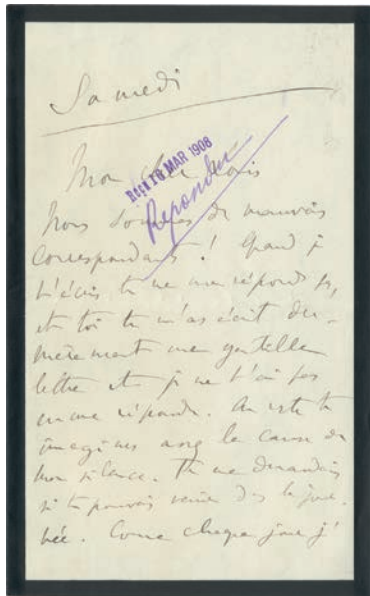 Samedi
Mon cher Louis
REÇU 18 MAR 1908
Répondu
Nous sommes de mauvais
correspondants ! Quand je
t'écris tu ne me réponds pas,
et toi tu m'as écrit der-
nièrement une gentille
lettre et je ne t'ai pas
encore répondu. Au reste tu
imagines assez la cause de
mon silence. Tu me demandais
si tu pouvais venir dans la jour-
née. Comme chaque jour j'